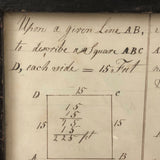 Upon a given Line AB,
to describe a Square ABC
D, each side = 15 Feet
15
D C
15
15
75
15
225 ft
15 15